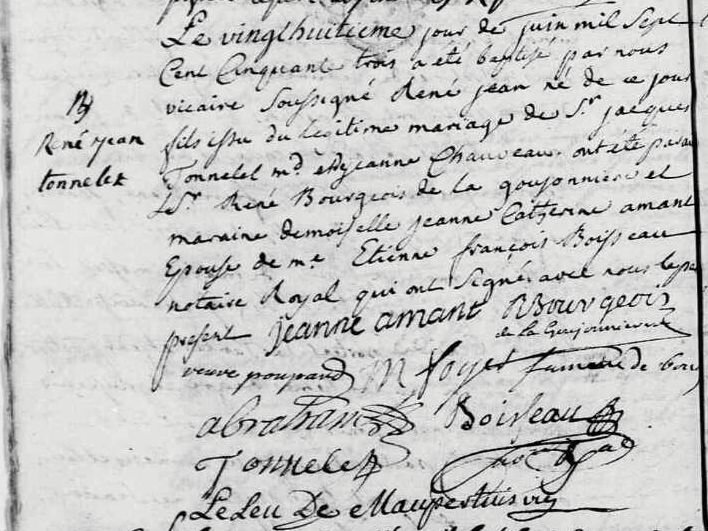 Le vingthuitieme jour de juin mil sept
Cent Cinquant trois a eté baptisé par nous
vicaire soussigné René jean né de ce jour
fils issu du legitime mariage de Sr. jacques
Tonnelet md. et jeanne Chauveau. ont été parain
René Bourgeois de la goujonniere et
maraine demoiselle jeanne Catherine amant
Epouse de me. Etienne françois Boisseau
notaire Royal qui ont signé avec nous le pere
present jeanne amant RBourgeois
de la Goujonniere
B
René jean
tonnelet
veuve poupard M foyer fumeree de
abraham Boisseau
Tonnelet
Leleu De Maupertuis vic